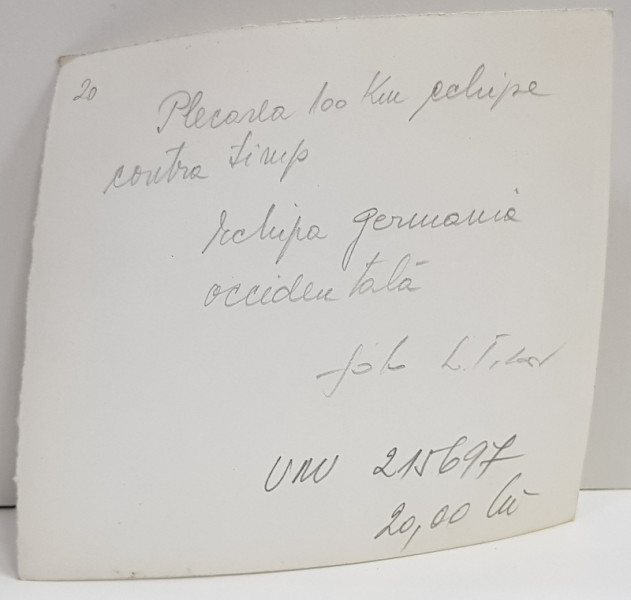 20
Plecarea 100 Km echipe
contra timp
Echipa Germania
occidentală
foto L. Tibor
UNU 215697
20,00 lei